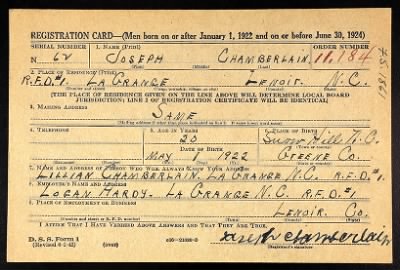 REGISTRATION CARD—(Men born on or after January 1, 1922 and on or before June 30, 1924)
SERIAL NUMBER 1. NAME (Print) ORDER NUMBER
N 62 JOSEPH CHAMBERLAIN 11,184
2. PLACE OF RESIDENCE (Print)
R.F.D.#1. LA GRANGE LENOIR N.C.
[THE PLACE OF RESIDENCE GIVEN ON THE LINE ABOVE WILL DETERMINE LOCAL BOARD
JURISDICTION; LINE 2 OF REGISTRATION CERTIFICATE WILL BE IDENTICAL]
3. MAILING ADDRESS
SAME
4. TELEPHONE 5. AGE IN YEARS 6. PLACE OF BIRTH
20 Snow Hill N.C.
DATE OF BIRTH
MAY 1922 GREENE CO.
7. NAME AND ADDRESS OF PERSON WHO WILL ALWAYS KNOW YOUR ADDRESS
LILLIAN CHAMBERLAIN. LA GRANGE N.C. R.F.D.#1.
8. EMPLOYER'S NAME AND ADDRESS
LOGAN HARDY. LA GRANGE N.C. R.F.D.#1.
9. PLACE OF EMPLOYMENT OR BUSINESS
LENOIR. CO.
I AFFIRM THAT I HAVE VERIFIED ABOVE ANSWERS AND THAT THEY ARE TRUE.
D. S. S. Form 1
Joseph Chamberlain